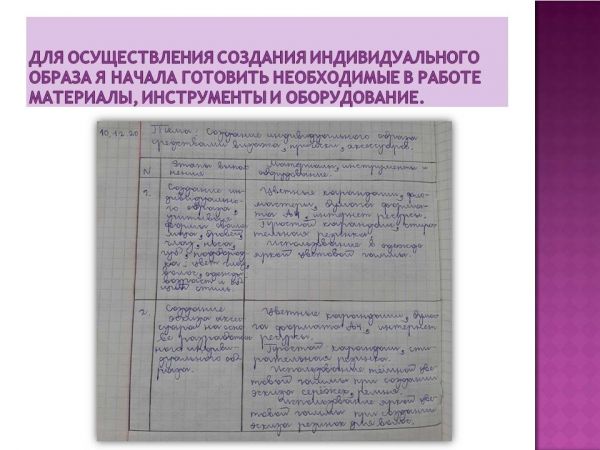 ДЛЯ ОСУЩЕСТВЛЕНИЯ СОЗДАНИЯ ИНДИВИДУАЛЬНОГО
ОБРАЗА Я НАЧАЛА ГОТОВИТЬ НЕОБХОДИМЫЕ В РАБОТЕ
МАТЕРИАЛЫ, ИНСТРУМЕНТЫ И ОБОРУДОВАНИЕ.
10.12.20 Тема: Создание индивидуального образа
средствами визажа, причёски, аксессуаров.
N
Этапы выпол-
нения
Материалы, инструменты и
оборудование.
1.
Создание ин-
дивидуально-
го образа,
учитывая
форму овала
лица, бровей,
глаз, носа,
губ, подбород-
ка: цвет глаз,
волос, одежды,
возраст и
стиль.
Цветные карандаши, фло-
мастеры, бумага форма-
та А4, интернет ресурсы.
Простой карандаш, стира-
тельная резинка.
Использование в одежде
яркой цветовой гаммы.
2.
Создание
эскиза аксес-
суаров на осно-
ве разработан-
ного индиви-
дуального об-
раза.
Цветные карандаши, бума-
га формата А4, интернет
ресурсы.
Простой карандаш, сти-
рательная резинка.
Использование тёмной цве-
товой гаммы при создании
эскиза серёжек, ремня.
Использование яркой цве-
товой гаммы при создании
эскиза резинок для волос.